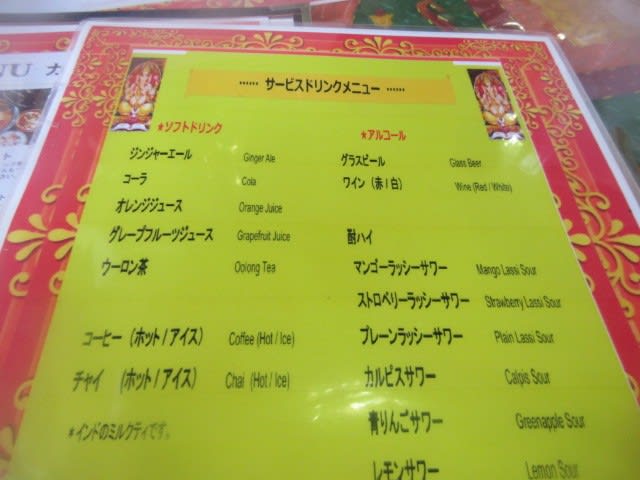 NU
…… サービスドリンクメニュー ……
★ソフトドリンク
ジンジャーエール Ginger Ale
コーラ Cola
オレンジジュース Orange Juice
グレープフルーツジュース Grapefruit Juice
ウーロン茶 Oolong Tea
コーヒー (ホット / アイス) Coffee (Hot / Ice)
チャイ (ホット / アイス) Chai (Hot / Ice)
★インドのミルクティです。
★アルコール
グラスビール Glass Beer
ワイン (赤 / 白) Wine (Red / White)
酎ハイ
マンゴーラッシーサワー Mango Lassi Sour
ストロベリーラッシーサワー Strawberry Lassi Sour
プレーンラッシーサワー Plain Lassi Sour
カルピスサワー Calpis Sour
青りんごサワー Greenapple Sour
レモンサワー Lemon Sour